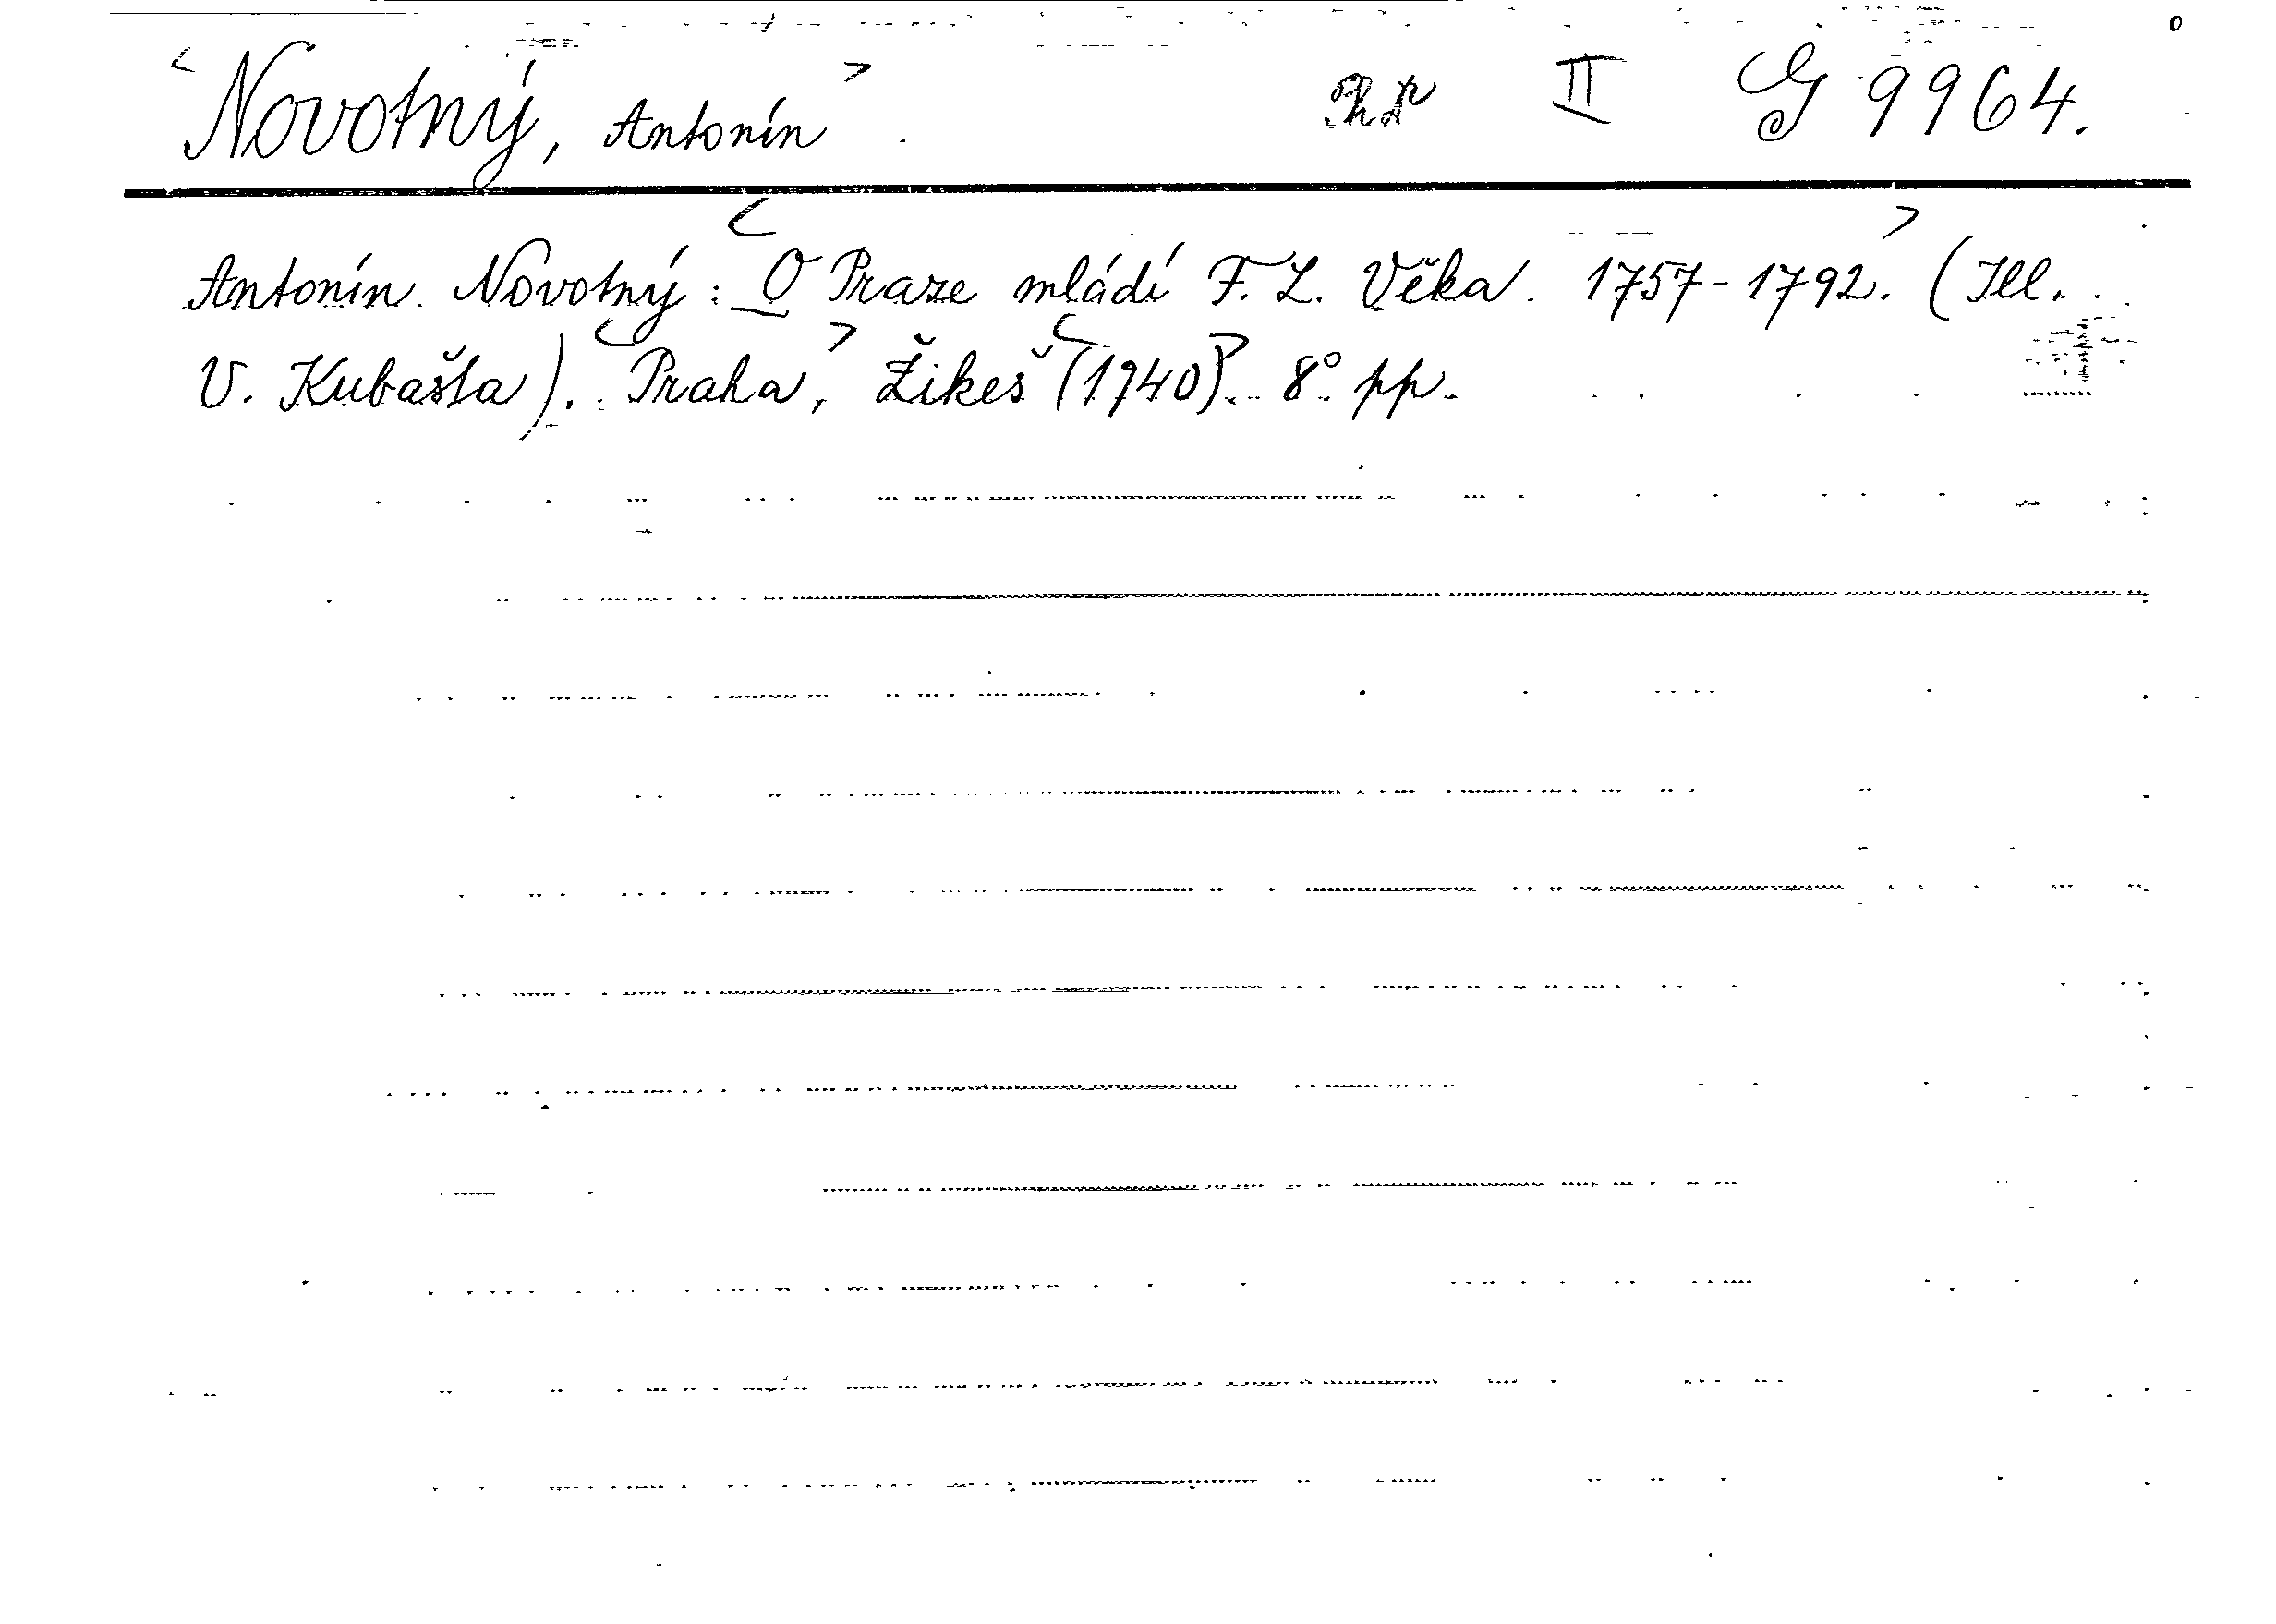 <Novotný, Antonín> PhDr II G 9964.
Antonín Novotný: <O Praze mládí F. L. Věka. 1757-1792.> (Ill.
V. Kubašta). <Praha>, Žikeš <(1940)>. 8° pp.